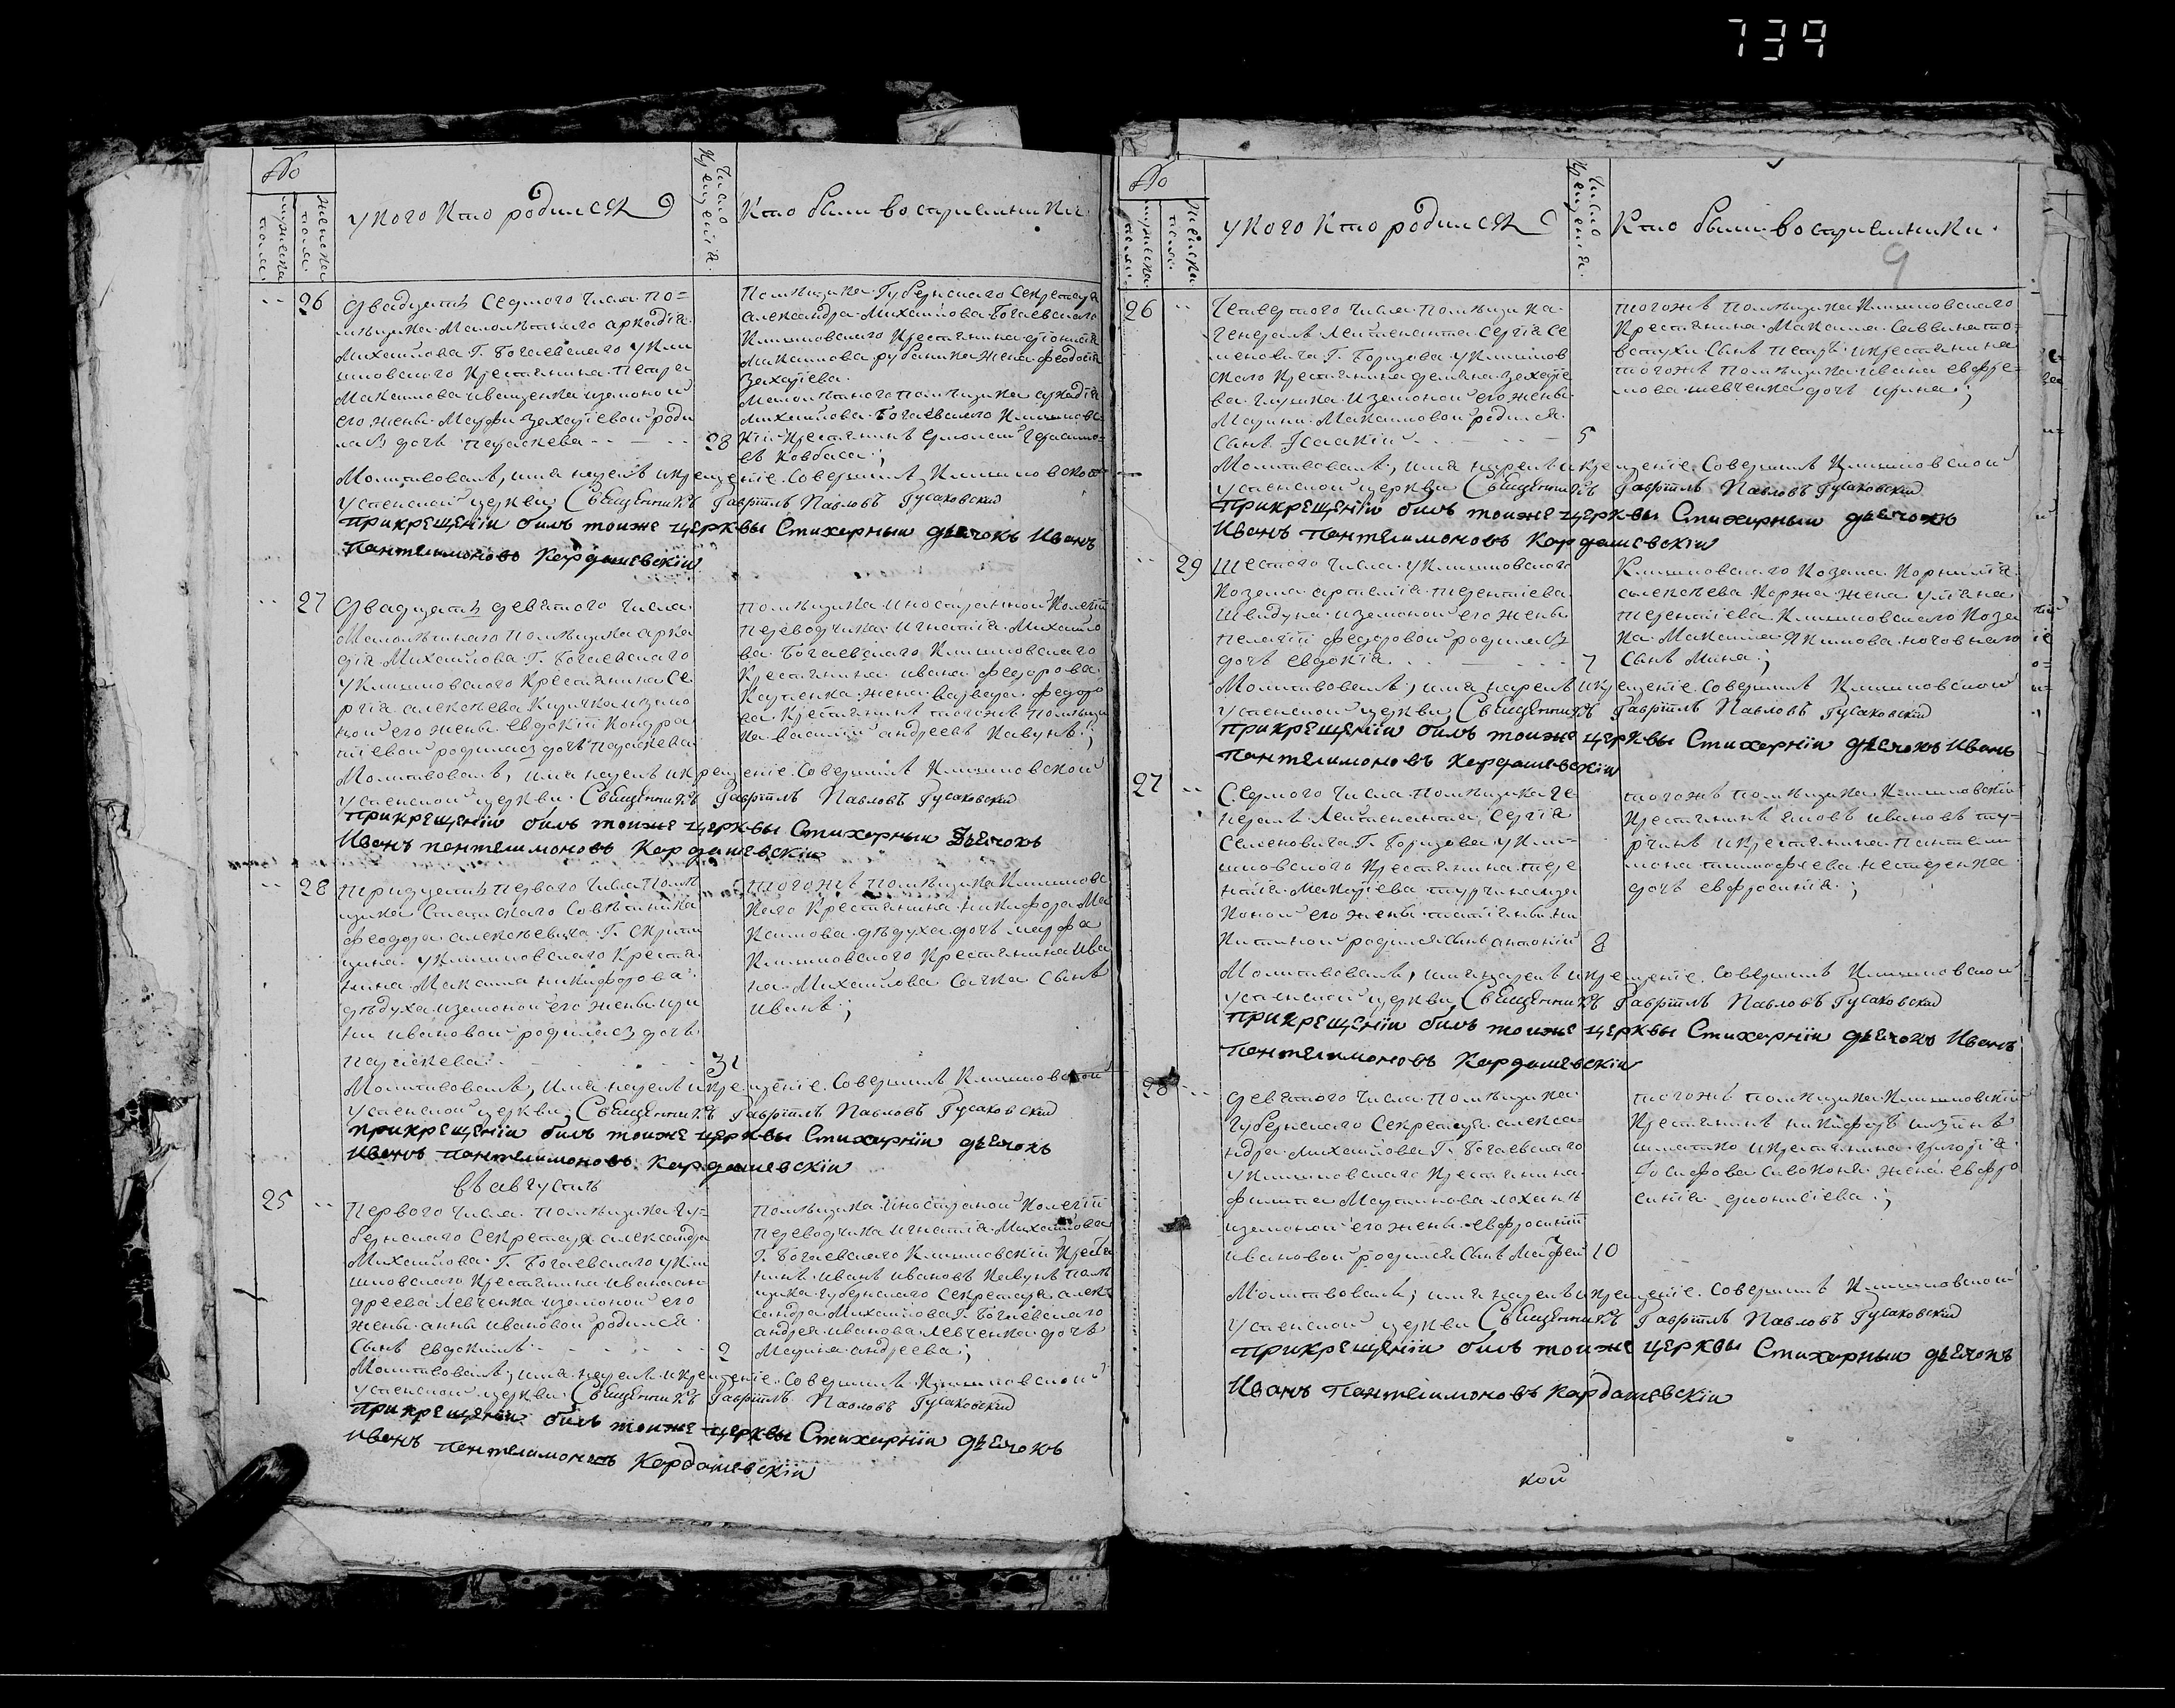 739
№
мужеска полы.
женска полы.
У кого кто родился
Число крещенія.
Кто были восприемники.
-- 26
Двадцять Седмого числа по=
мѣщика Малолѣтнего Аркадія
Михайлова Г. Богаевского у Кли
шковского крестянина Петра
Максимова Иващенка изаконой
его жены Марфи Захаріевой роди
лась дочь Параскева
28
Помѣщика Губернского Секретара
Александра Михайлова Богаевского
Климовского крестянина Діонисія
Максимова рубаника жена Феодосія
Захаріева.
Малолѣтного помѣщика Аркадія
Михайлова Богаевского
крестянинъ Ермолай Герасимо=
въ Ковбаса;
Молитвовалъ, имя нарелъ и крещеніе Совершилъ
Успенской церкви Священникъ Гавріилъ Павловъ Гусаковскій
Прикрещеніи билъ тоиже церквы Стихарныи дьячокъ Иванъ
Пантелимоновъ Кардашевскіи
-- 27
Двадцять девятого числа
Малолѣтнаго помѣщика Арка
дія Михайлова Г. Богаевского
крестянина Се
ргія Алексѣева
ной его жены Евдокіи Кондра
тіевой родилась дочь Параскева
помѣщика Иностранной Колегіи
переводчика Игнатія Михайло
ва Богаевского
крестянина Ивана Федорова
жена Варвара Федоро
ва крестянинъ тогожъ помѣщи
ка Василій Андреевъ Кавунъ;
Молитвовалъ, имя нарелъ и крещеніе Совершилъ
Успенской церкви Священникъ Гавріилъ Павловъ Гусаковскій
Прикрещеніи билъ тоиже церквы Стихарныи Дьячокъ
Иванъ пантелимоновъ Кардашевскіи
-- 28
Тридцять первого числа Помѣ
щика Статского Совѣтника
Феодора Алексѣевича Г.
крестя
нина Максима Никифорова
дѣдуха изаконой его жены Ири
ни Ивановой родилась дочь
Параскева
31
Тогожъ помѣщика
кого крестянина Никифора Ма
ксимова дѣдуха дочь Марфа
крестянина Ива
на Михайлова Сачка Сынъ
Иванъ;
Молитвовалъ, имя нарелъ и крещеніе Совершилъ
Успенской церкви Священникъ Гавріилъ Павловъ Гусаковскій
Прикрещеніи билъ тоиже церквы Стихарніи дьячокъ
Иванъ Пантелимоновъ Кардашевскіи
въ августѣ
25 --
Первого числа помѣщика Гу=
бернского Секретара Александра
Михайлова Г. Богаевского
крестянина Ивана Ан
дреева Левченка изаконой его
жены Анны Ивановой родился
Сынъ Евдокимъ
2
Помѣщика Иностраной Колегіи
переводчика Игнатія Михайлова
Г. Богаевского
Иванъ Ивановъ Кавунъ помѣ
щика Губернского Секретара Алек
сандра Михайлова Г. Богаевского
Андрея Иванова Левченка дочь
Марія Андреева;
Молитвовалъ, имя нарелъ и крещеніе Совершилъ
Успенской церкви Священникъ Гавріилъ Павловъ Гусаковскій
Прикрещеніи билъ тоиже церквы Стихарніи дьячокъ
Иванъ Пантелимоновъ Кардашевскіи
№
мужеска полы.
женска полы.
У кого кто родился
Число крещенія.
Кто были восприемники.
9
26 --
Четвертого числа помѣщика
Генералъ Лейтенанта Сергія Се
меновича Г. Борщова
ского крестянина Демяна Захаріе
ва Глушка изаконой его жены
Марини Максимовой родился
Сынъ Ісаакій
5
тогожъ помѣщика
крестянина Максима Саввина
Сынъ Петръ и крестянина
тогожъ помѣщика Ивана Евфре=
мова Шевченка дочь Ирина;
Молитвовалъ, имя нарелъ и крещеніе Совершилъ
Успенской церкви Священникъ Гавріилъ Павловъ Гусаковскій
Прикрещеніи билъ тоиже церквы Стихарныи дьячокъ
Иванъ Пантелимоновъ Кардашевскіи
-- 29
Шестого числа
козака Артемія Терентіева
Швидуна изаконой его жены
Пелагіи Федоровой родилась
дочь Евдокія
7
козака Корнилія
Алексѣева Коржа жена Уліана
Терентіева коза
ка Максима Якимова
Сынъ Мина;
Молитвовалъ, имя нарелъ и крещеніе Совершилъ
Успенской церкви Священникъ Гавріилъ Павловъ Гусаковскій
Прикрещеніи билъ тоиже церквы Стихарніи дьячокъ Иванъ
Пантелимоновъ Кардашевскіи
27 --
Седмого числа помѣщика Ге
нералъ Лейтенанта Сергія
Семеновича Г. Борщова
крестянина Тере
нтія Макаріева Турчина иза
коной его жены Татіаны Ни
китиной родился Сынъ Антоній
8
тогожъ помѣщика
крестянинъ Яковъ Ивановъ Ту=
рчинъ и крестянина Пантели
мона Тимофеева Нестеренка
дочь Евфросинія;
Молитвовалъ, имя нарелъ и крещеніе Совершилъ
Успенской церкви Священникъ Гавріилъ Павловъ Гусаковскій
Прикрещеніи билъ тоиже церквы Стихарніи дьячокъ Иванъ
Пантелимоновъ Кардашевскіи
28 --
Девятого числа помѣщика
Губернского Секретара Алекса=
ндра Михайлова Г. Богаевского
крестянина
Филипа Мартинова
изаконой его жены Евфросиніи
Ивановой родился Сынъ Матфей
10
тогожъ помѣщика
крестянинъ Никифоръ
и крестянина Григорія
Іосифова Сивоконя жена Евфро
синія Діонисіева;
Молитвовалъ; имя нарелъ и крещеніе Совершилъ
Успенской церкви Священникъ Гавріилъ Павловъ Гусаковскій
Прикрещеніи билъ тоиже церквы Стихарныи дьячокъ
Иванъ Пантелимоновъ Кардашевскіи
кой